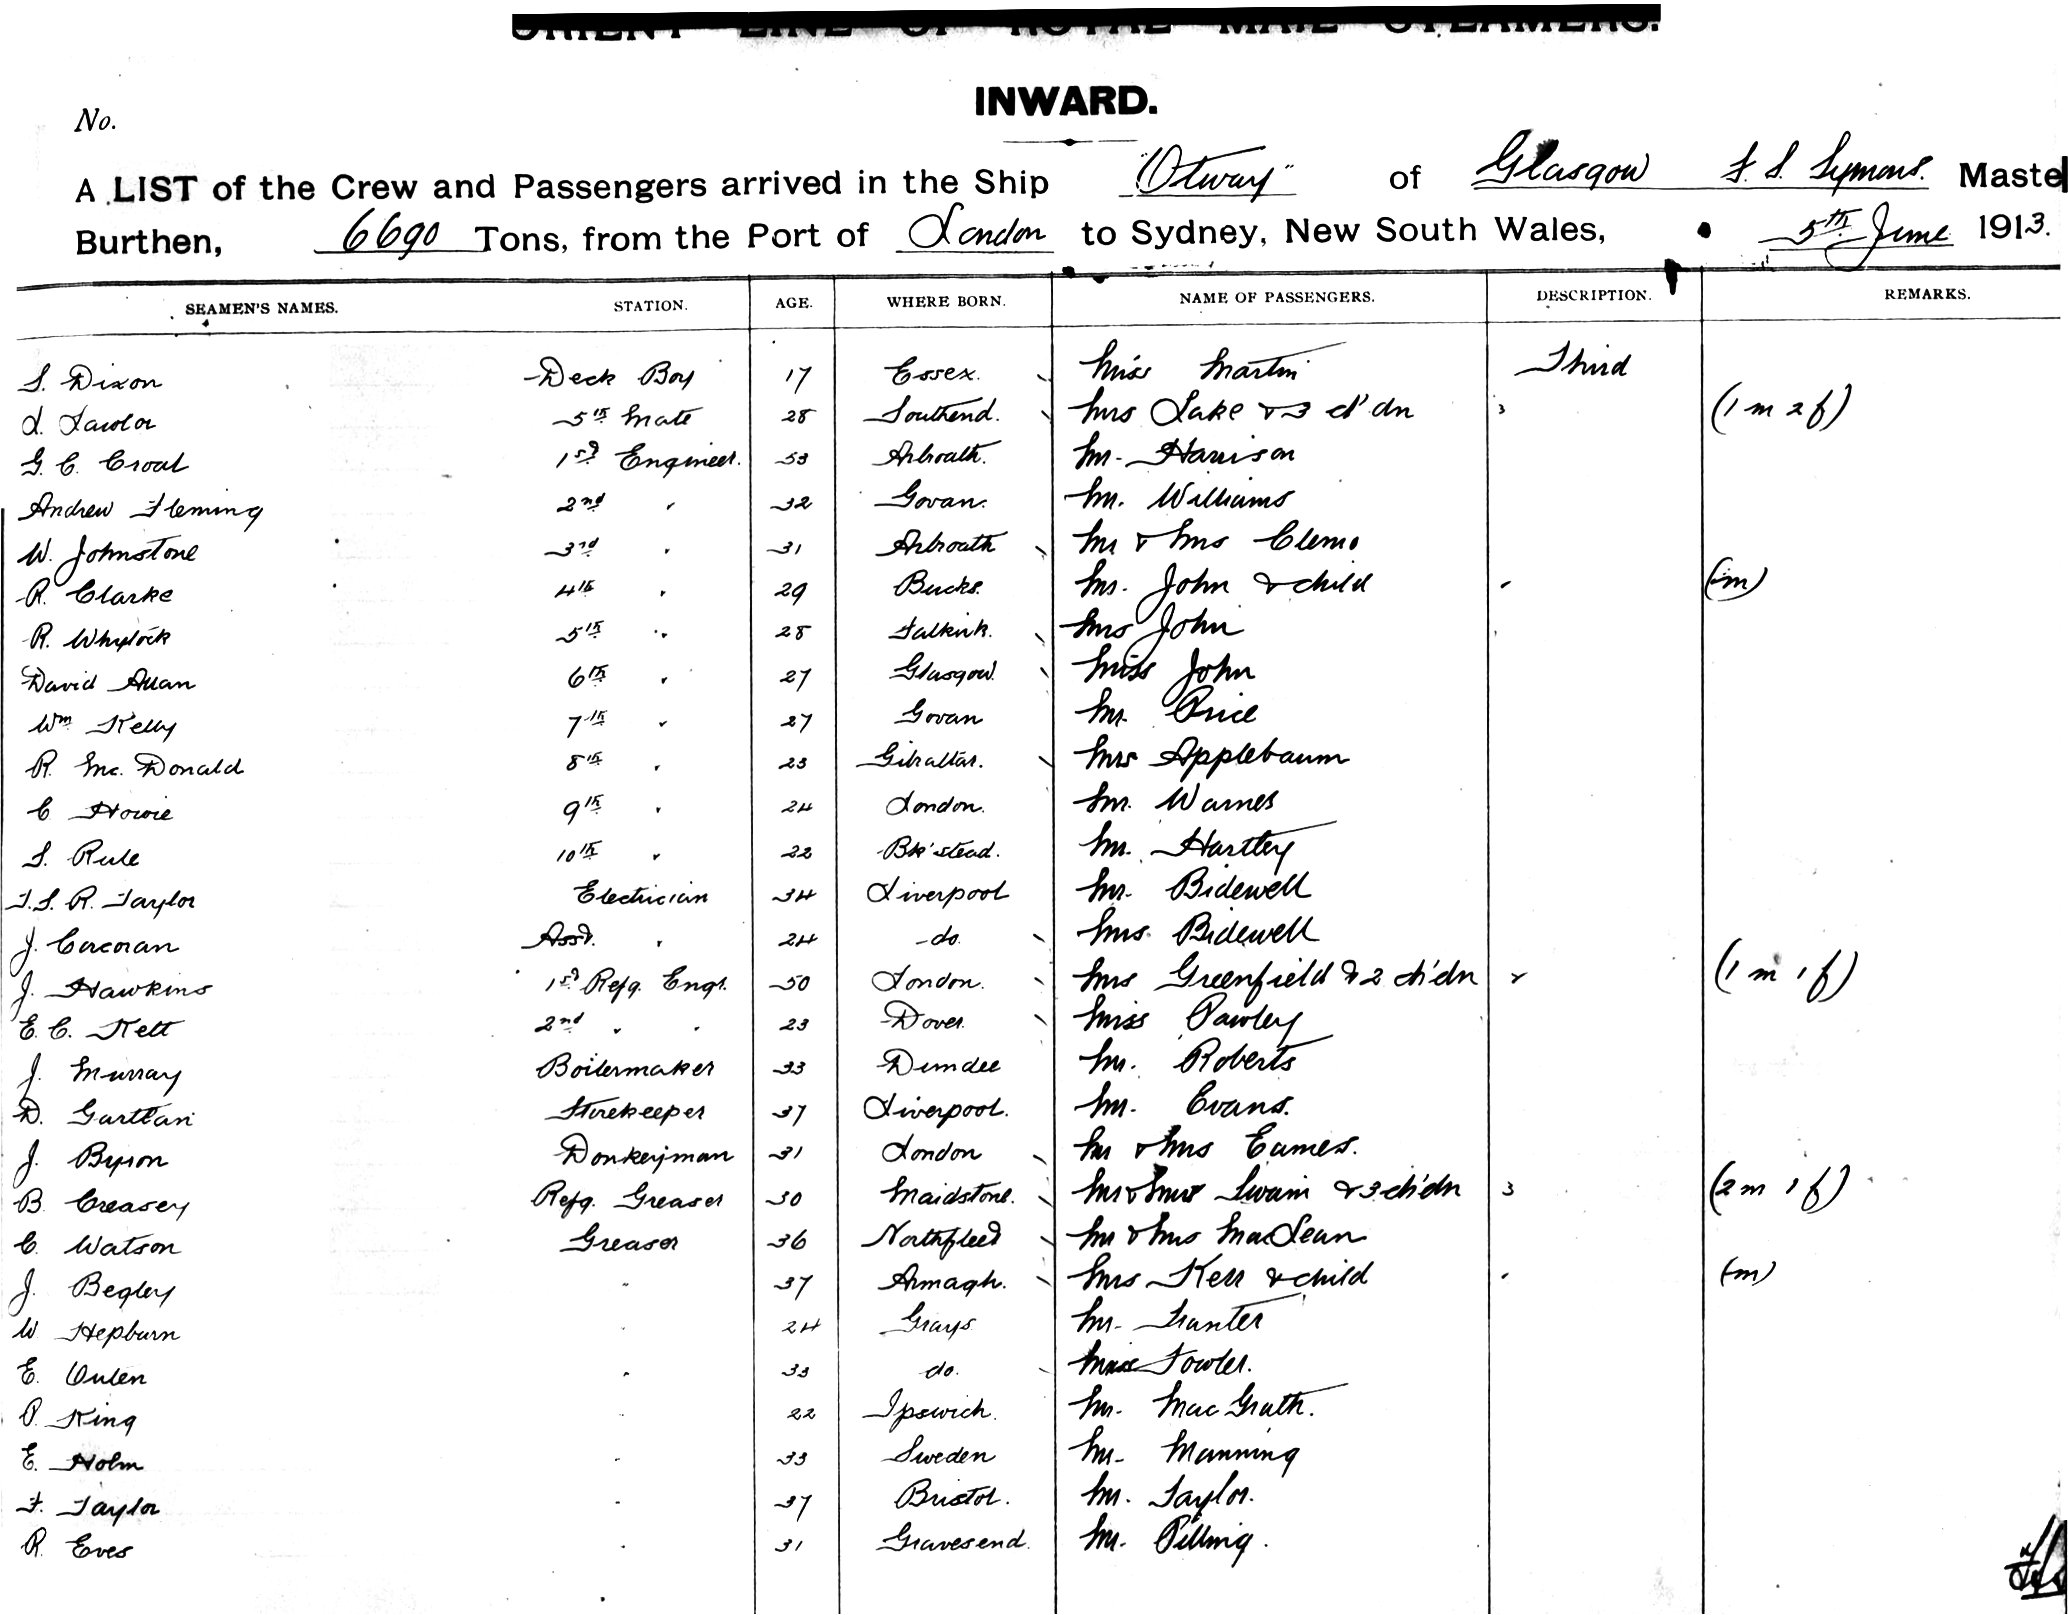 ORIENT LINE OF ROYAL MAIL STEAMERS.
INWARD.
No.
A LIST of the Crew and Passengers arrived in the Ship "Otway" of Glasgow F. S. Symons. Maste
Burthen, 6690 Tons, from the Port of London to Sydney, New South Wales, 5th June 1913.
SEAMEN'S NAMES. STATION. AGE. WHERE BORN. NAME OF PASSENGERS. DESCRIPTION. REMARKS.
S. Dixon Deck Boy 17 Essex. Miss Martin Third
L. Lawlor 5th Mate 28 Southend. Mrs Lake & 3 ch'dn 3 (1 m 2 f)
G. C. Croal 1st Engineer. 53 Arbroath. Mr. Harrison
Andrew Fleming 2nd " 32 Govan. Mr. Williams
W. Johnstone 3rd " 31 Arbroath Mr & Mrs Clemo
R. Clarke 4th " 29 Bucks. Mr. John & child (m)
R. Whylock 5th " 28 Falkirk. Mrs John
David Allan 6th " 27 Glasgow. Miss John
Wm Kelly 7th " 27 Govan Mr. Price
R. Mc. Donald 8th " 23 Gibraltar. Mrs Applebaum
C Howie 9th " 24 London. Mr. Warnes
S. Rule 10th " 22 Bk'stead. Mr. Hartley
F. S. R. Taylor Electrician 34 Liverpool Mr. Bidewell
J. Corcoran Asst. " 24 do. Mrs. Bidewell
J. Hawkins 1st Refg. Engr. 50 London. Mrs Greenfield & 2 ch'dn 2 (1 m 1 f)
E. C. Kett 2nd " " 23 Dover. Miss Pawley
J. Murray Boilermaker 33 Dundee Mr. Roberts
D. Gartlan Storekeeper 37 Liverpool. Mr. Evans.
J. Byron Donkeyman 31 London Mr & Mrs Eames.
B. Creasey Refg. Greaser 30 Maidstone. Mr & Mrs Swain & 3 ch'dn 3 (2 m 1 f)
C. Watson Greaser 36 Northfleet Mr & Mrs MacLean
J. Begley " 37 Armagh. Mrs Kerr & child (m)
W Hepburn " 24 Grays Mr. Tranter
E. " 33 do. Miss Fowler.
P. King " 22 Ipswich. Mr. Mac Grath.
E. Holm " 33 Sweden Mr. Manning
F. Taylor " 37 Bristol. Mr. Taylor.
R. Eves " 31 Gravesend. Mr. Pilling.